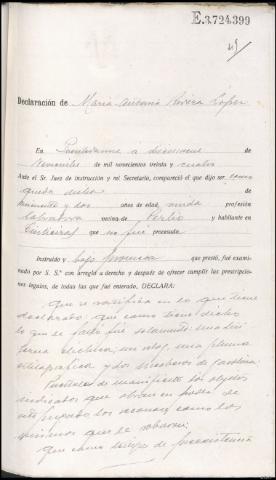 E.3.724.399
Declaración de Maria Antonia Rivera López
En Puentedeume a diecinueve de
Noviembre de mil novecientos treinta y cuatro
Ante el Sr. Juez de instrucción y mi Secretario, compareció el que dijo ser como
queda dicho de
treinta y dos años de edad viuda profesión
Labradora vecina de Perlío y habitante en
que no fué procesada
Instruido y bajo promesa que prestó, fué exami-
nado por S. S.ª con arreglo a derecho y después de ofrecer cumplir las prescripcio-
nes legales, de todas las que fué enterado, DECLARA:
Que se ratifica en lo que tiene
declarado; que como tiene dicho
lo que le faltó fué solamente: una lin-
terna eléctrica, un reloj, una pluma
estilográfica y dos mecheros de gasolina.
Puestos de manifiesto los objetos
indicados que obran en poder de
este Juzgado los reconoce como los
mismos que le robaron;
Que como testigos de preexistencia